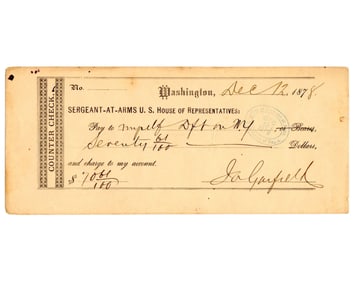 COUNTER CHECK.
No.
Washington, Dec 12 1878
SERGEANT-AT-ARMS U. S. HOUSE OF REPRESENTATIVES:
Pay to myself Dft on NY or Bearer
Seventy 61/100 Dollars,
and charge to my account.
$ 70 61/100
J A Garfield